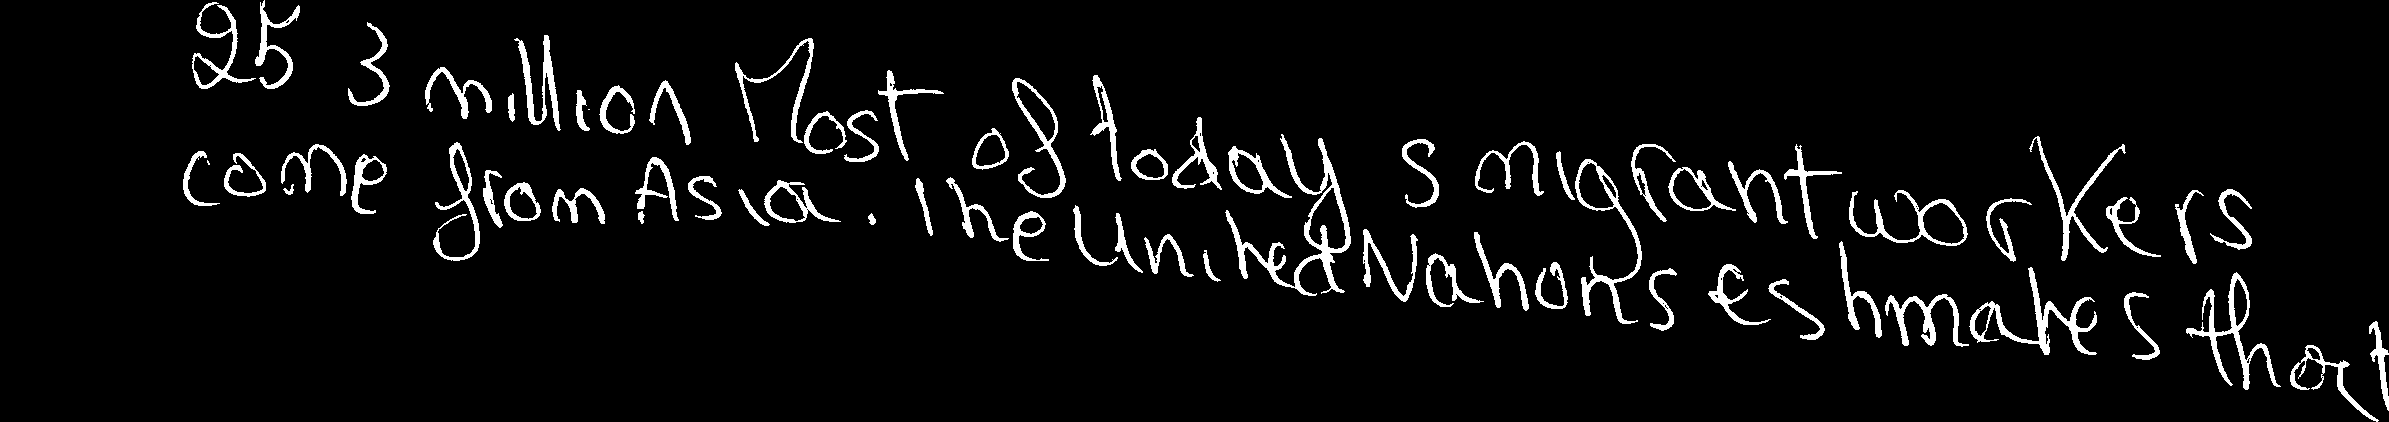 25 3 million Most of today s migrant workers
come from Asia. The United Nations estimates that